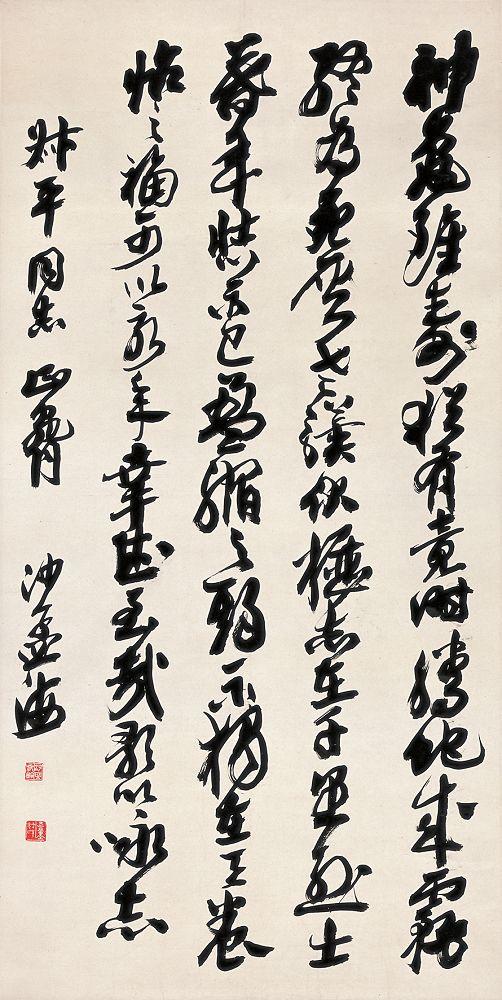 神龜雖壽猶有竟時騰蛇成霧
終為死灰老驥伏櫪志在千里烈士
暮年壯心不已盈縮之期不獨在天養
怡之福可以永年幸甚至哉歌以咏志
叔平同志正腕 沙孟海